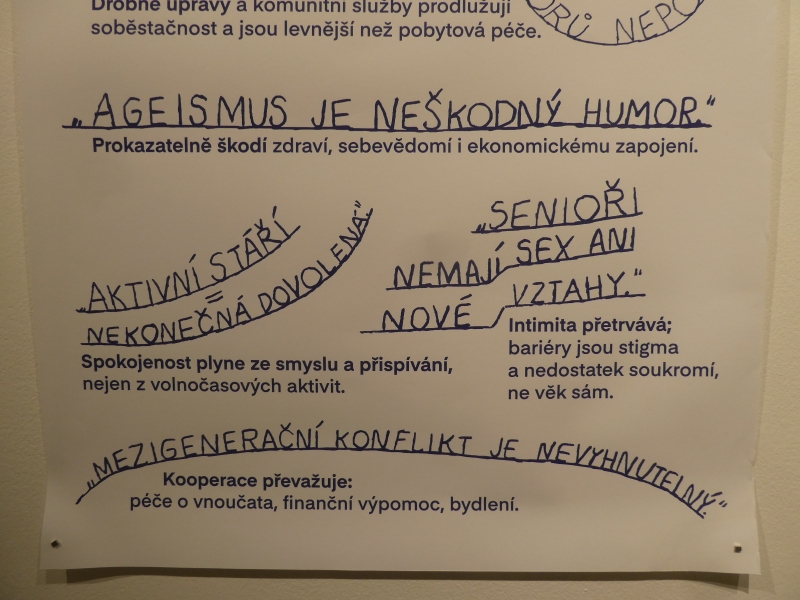 Drobné úpravy a komunitní služby prodlužují
soběstačnost a jsou levnější než pobytová péče.
„AGEISMUS JE NEŠKODNÝ HUMOR."
Prokazatelně škodí zdraví, sebevědomí i ekonomickému zapojení.
„AKTIVNÍ STÁŘÍ
=
NEKONEČNÁ DOVOLENÁ."
Spokojenost plyne ze smyslu a přispívání,
nejen z volnočasových aktivit.
„SENIOŘI
NEMAJÍ SEX ANI
NOVÉ VZTAHY."
Intimita přetrvává;
bariéry jsou stigma
a nedostatek soukromí,
ne věk sám.
„MEZIGENERAČNÍ KONFLIKT JE NEVYHNUTELNÝ."
Kooperace převažuje:
péče o vnoučata, finanční výpomoc, bydlení.